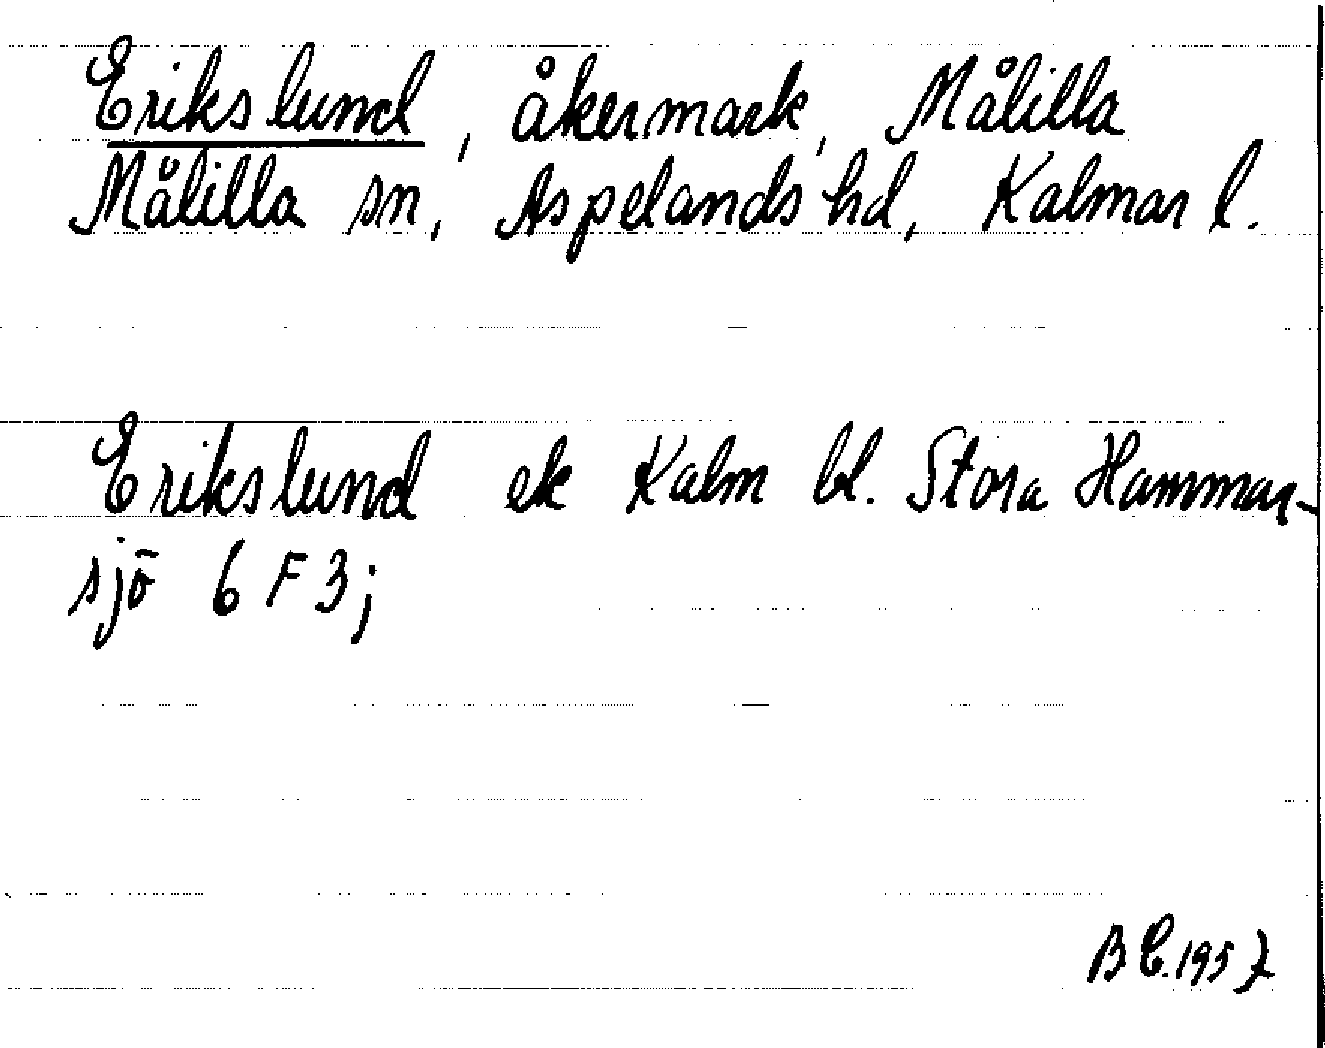 Erikslund, åkermark, Målilla
Målilla sn, Aspelands hd, Kalmar l.
Erikslund ek Kalm bl. Stora Hammar-
sjö 6 F 3j
B C. 1957